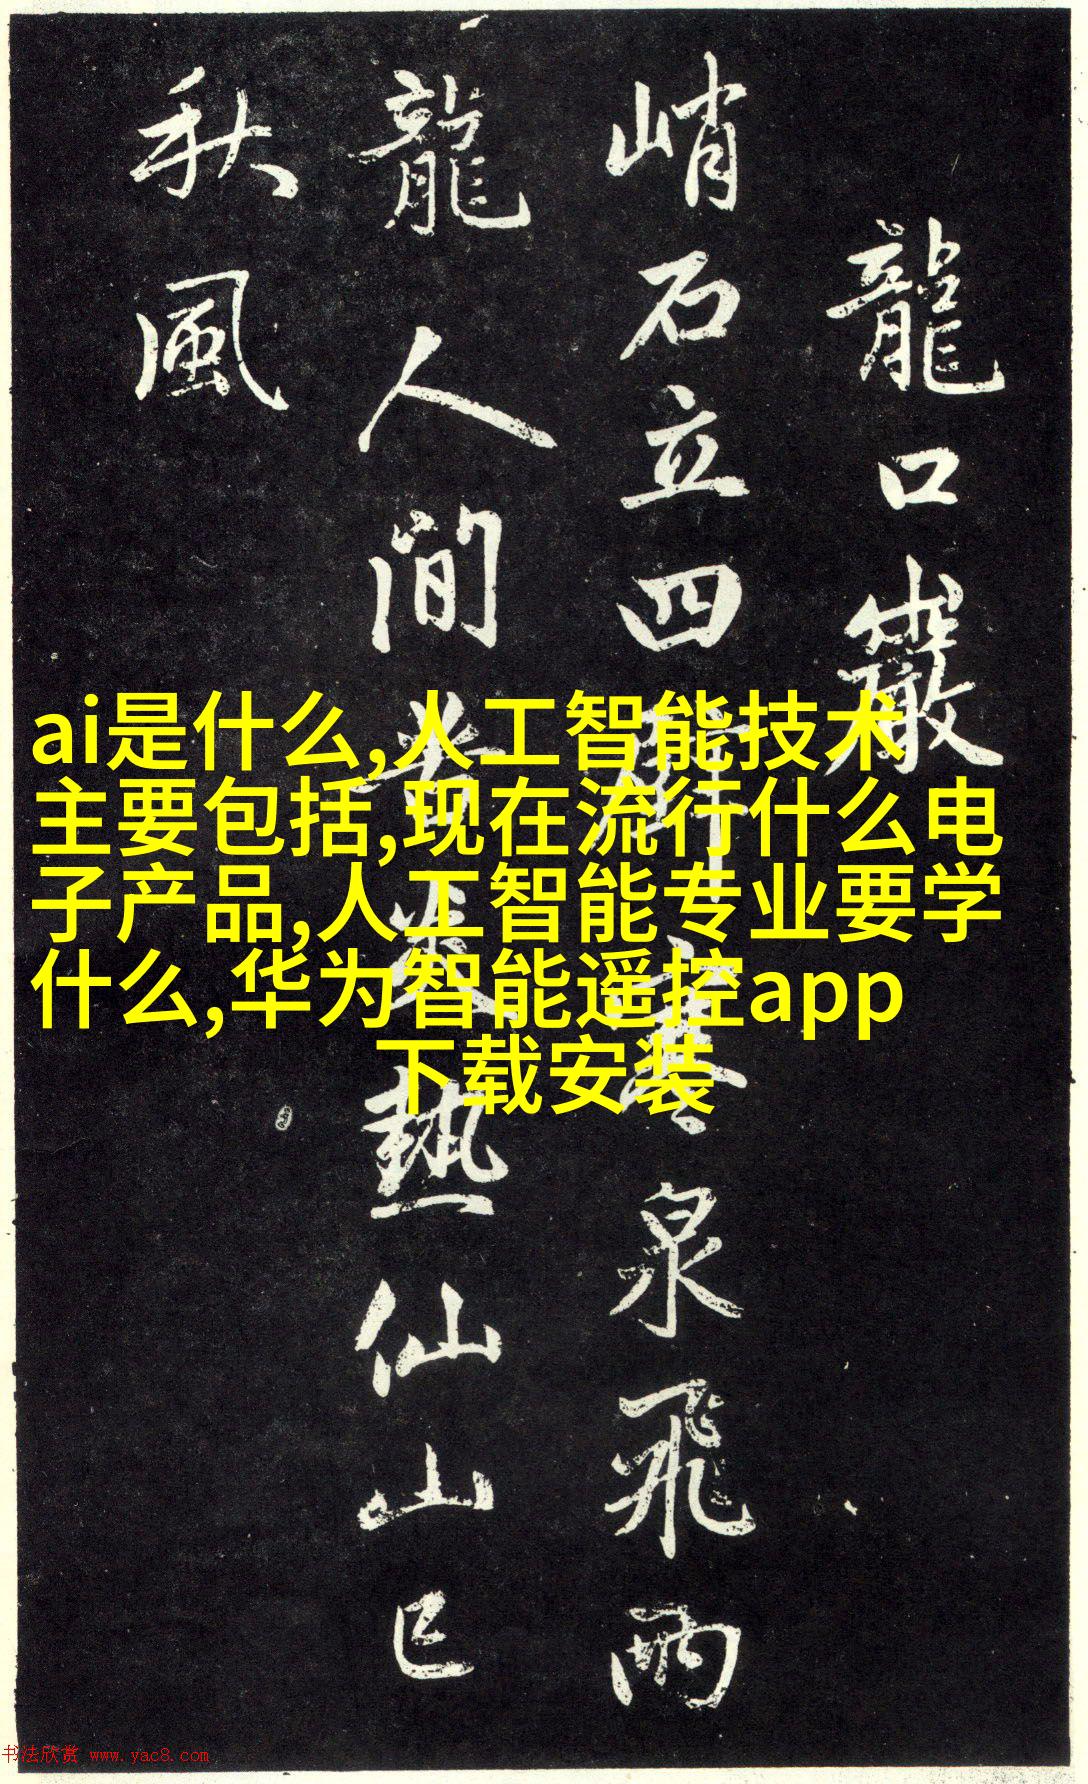 龍口巖
峭石立四壁寒泉飛兩
龍人間苦炎熱仙山已
秋風
ai是什么,人工智能技术
主要包括,现在流行什么电
子产品,人工智能专业要学
什么,华为智能遥控app
下载安装
书法欣赏 www.yac8.com